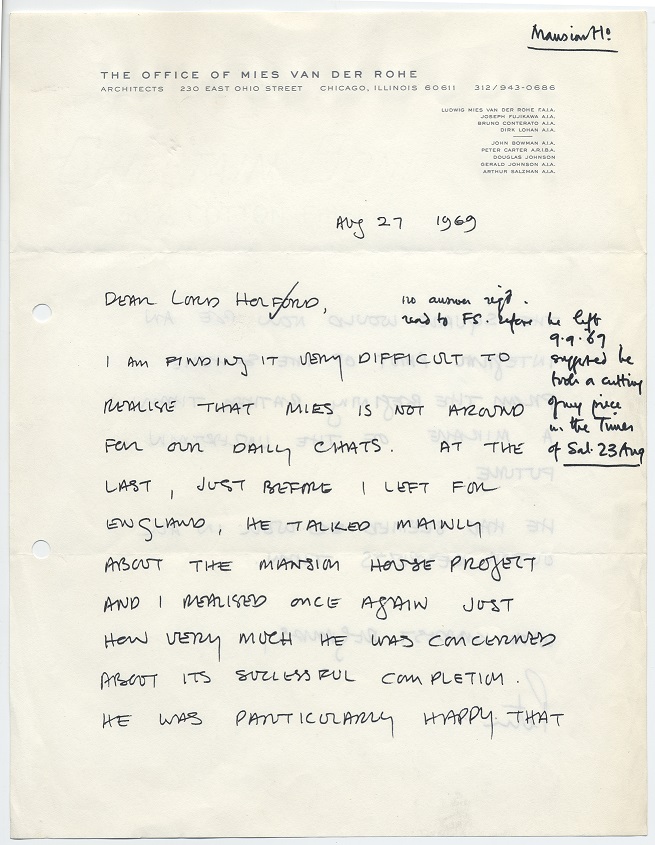 Mansion Ho
THE OFFICE OF MIES VAN DER ROHE
ARCHITECTS 230 EAST OHIO STREET CHICAGO, ILLINOIS 60611 312/943-0686
LUDWIG MIES VAN DER ROHE F.A.I.A.
JOSEPH FUJIKAWA A.I.A.
BRUNO CONTERATO A.I.A.
DIRK LOHAN A.I.A.
JOHN BOWMAN A.I.A.
PETER CARTER A.R.I.B.A.
DOUGLAS JOHNSON
GERALD JOHNSON A.I.A.
ARTHUR SALZMAN A.I.A.
Aug 27 1969
DEAR LORD HOLFORD,
no answer reqd.
read to FS. before he left
9.9.69
suggested he
took a cutting
of my piece
in the Times
of Sat. 23 Aug
I AM FINDING IT VERY DIFFICULT TO
REALISE THAT MIES IS NOT AROUND
FOR OUR DAILY CHATS. AT THE
LAST, JUST BEFORE I LEFT FOR
ENGLAND, HE TALKED MAINLY
ABOUT THE MANSION HOUSE PROJECT
AND I REALISED ONCE AGAIN JUST
HOW VERY MUCH HE WAS CONCERNED
ABOUT ITS SUCCESSFUL COMPLETION.
HE WAS PARTICULARLY HAPPY THAT